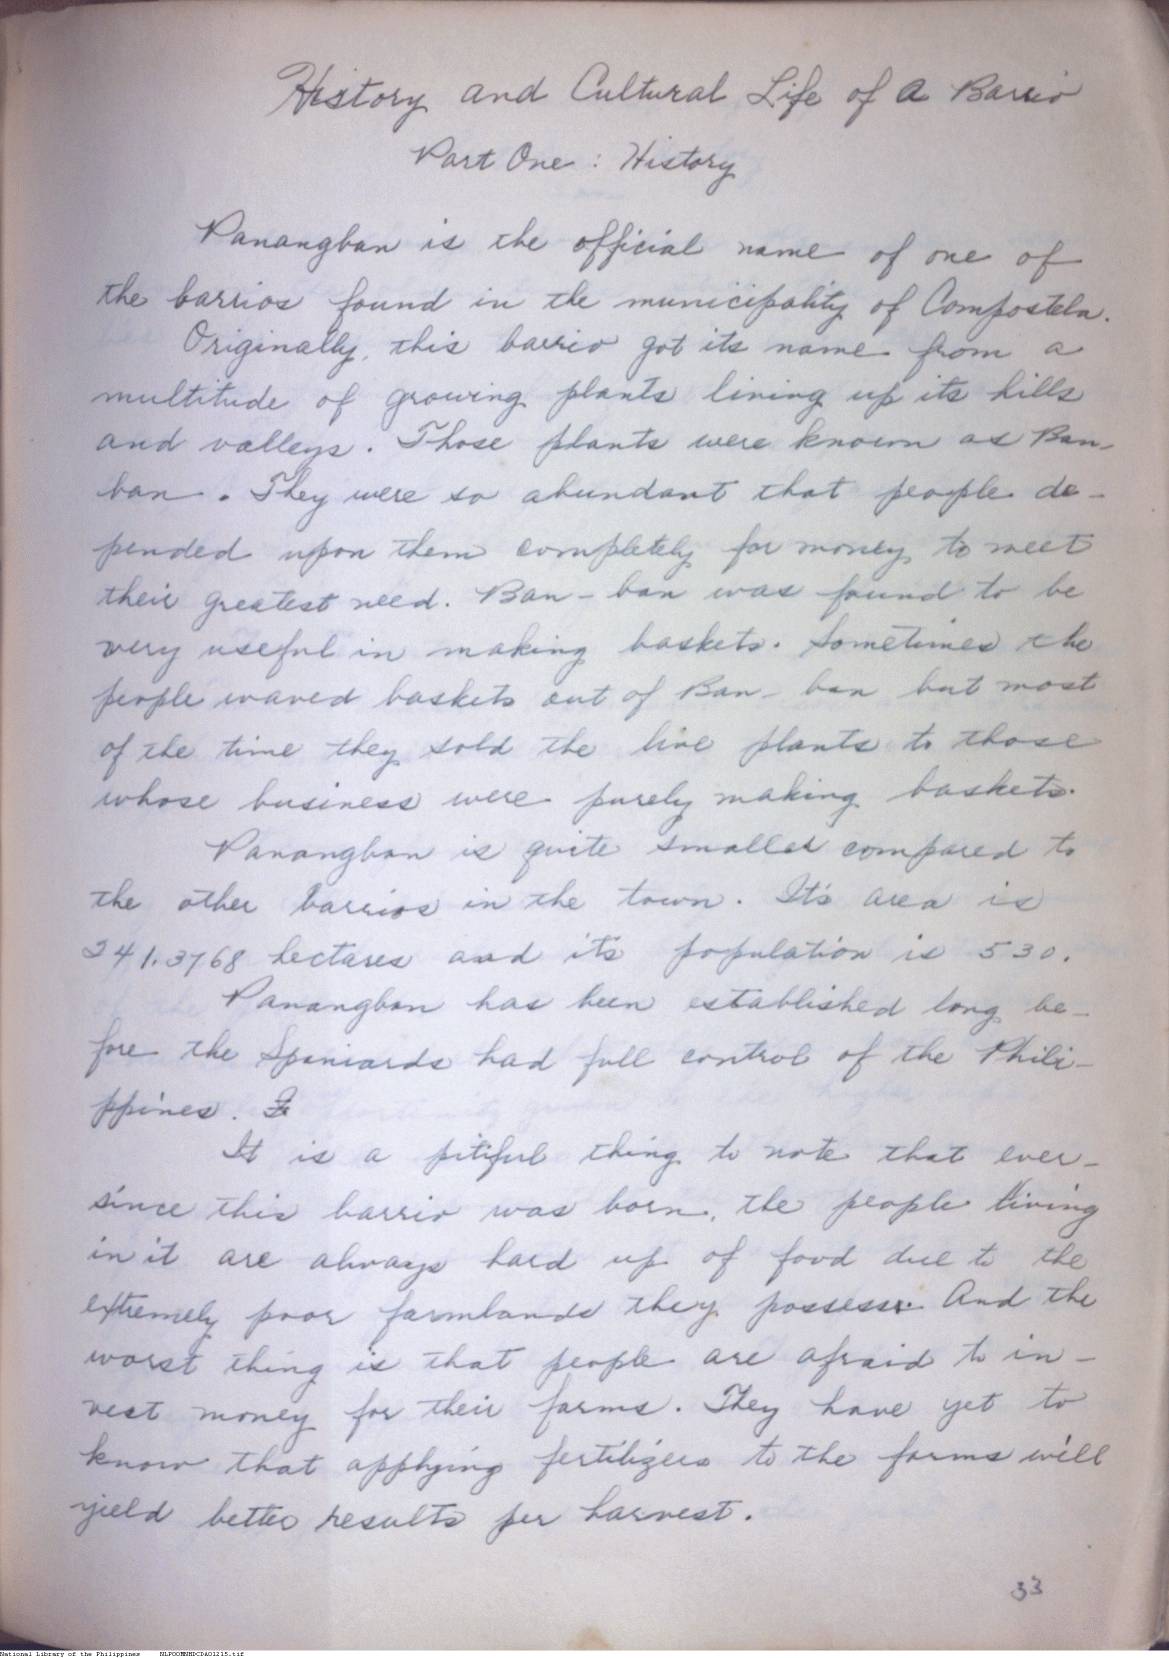 History and Cultural Life of A Barrio
Part One : History
Panangban is the official name of one of
the barrios found in the municipality of Compostela.
Originally, this barrio got its name from a
multitude of growing plants lining up its hills
and valleys. Those plants were known as Ban-
ban. They were so abundant that people de-
pended upon them completely for money to meet
their greatest need. Ban-ban was found to be
very useful in making baskets. Sometimes the
people waved baskets out of Ban-ban but most
of the time they sold the live plants to those
whose business were purely making baskets.
Panangban is quite smaller compared to
the other barrios in the town. It's area is
241.3768 hectares and its population is 530.
Panangban has been established long be-
fore the Spaniards had full control of the Phili-
ppines.
It is a pitiful thing to note that ever-
since this barrio was born, the people living
in it are always hard up of food due to the
extremely poor farmlands they possess. And the
worst thing is that people are afraid to in-
vest money for their farms. They have yet to
know that applying fertilizers to the farms will
yield better results per harvest.
33
National Library of the Philippines NLPOOMNHDCDA01215.tif